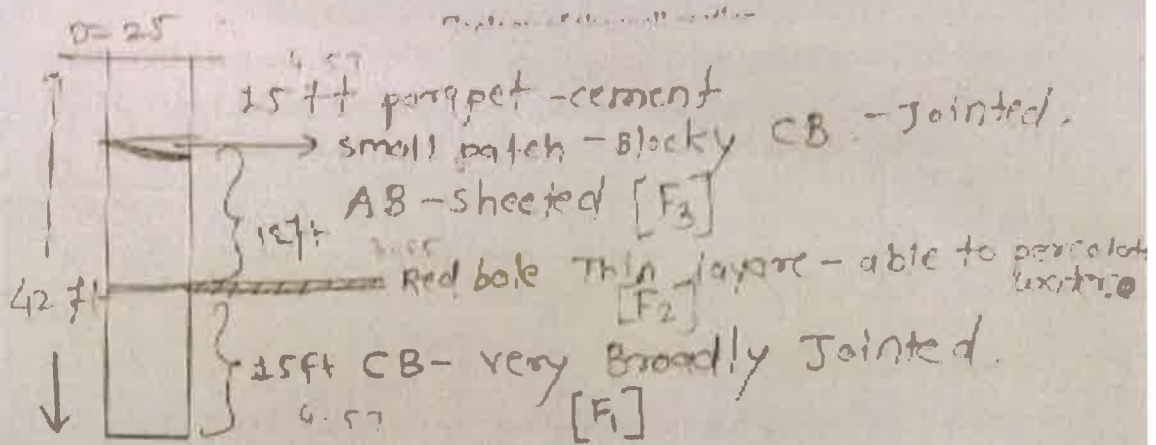 D= 25
4.57
15 ft parapet -cement
small patch - Blocky CB - Jointed.
AB - sheeted [F3]
12ft
3.65
Red bole Thin layare - able to percolate
42 ft
[F2]
15ft CB - very Broadly Jointed.
4.57
[F1]